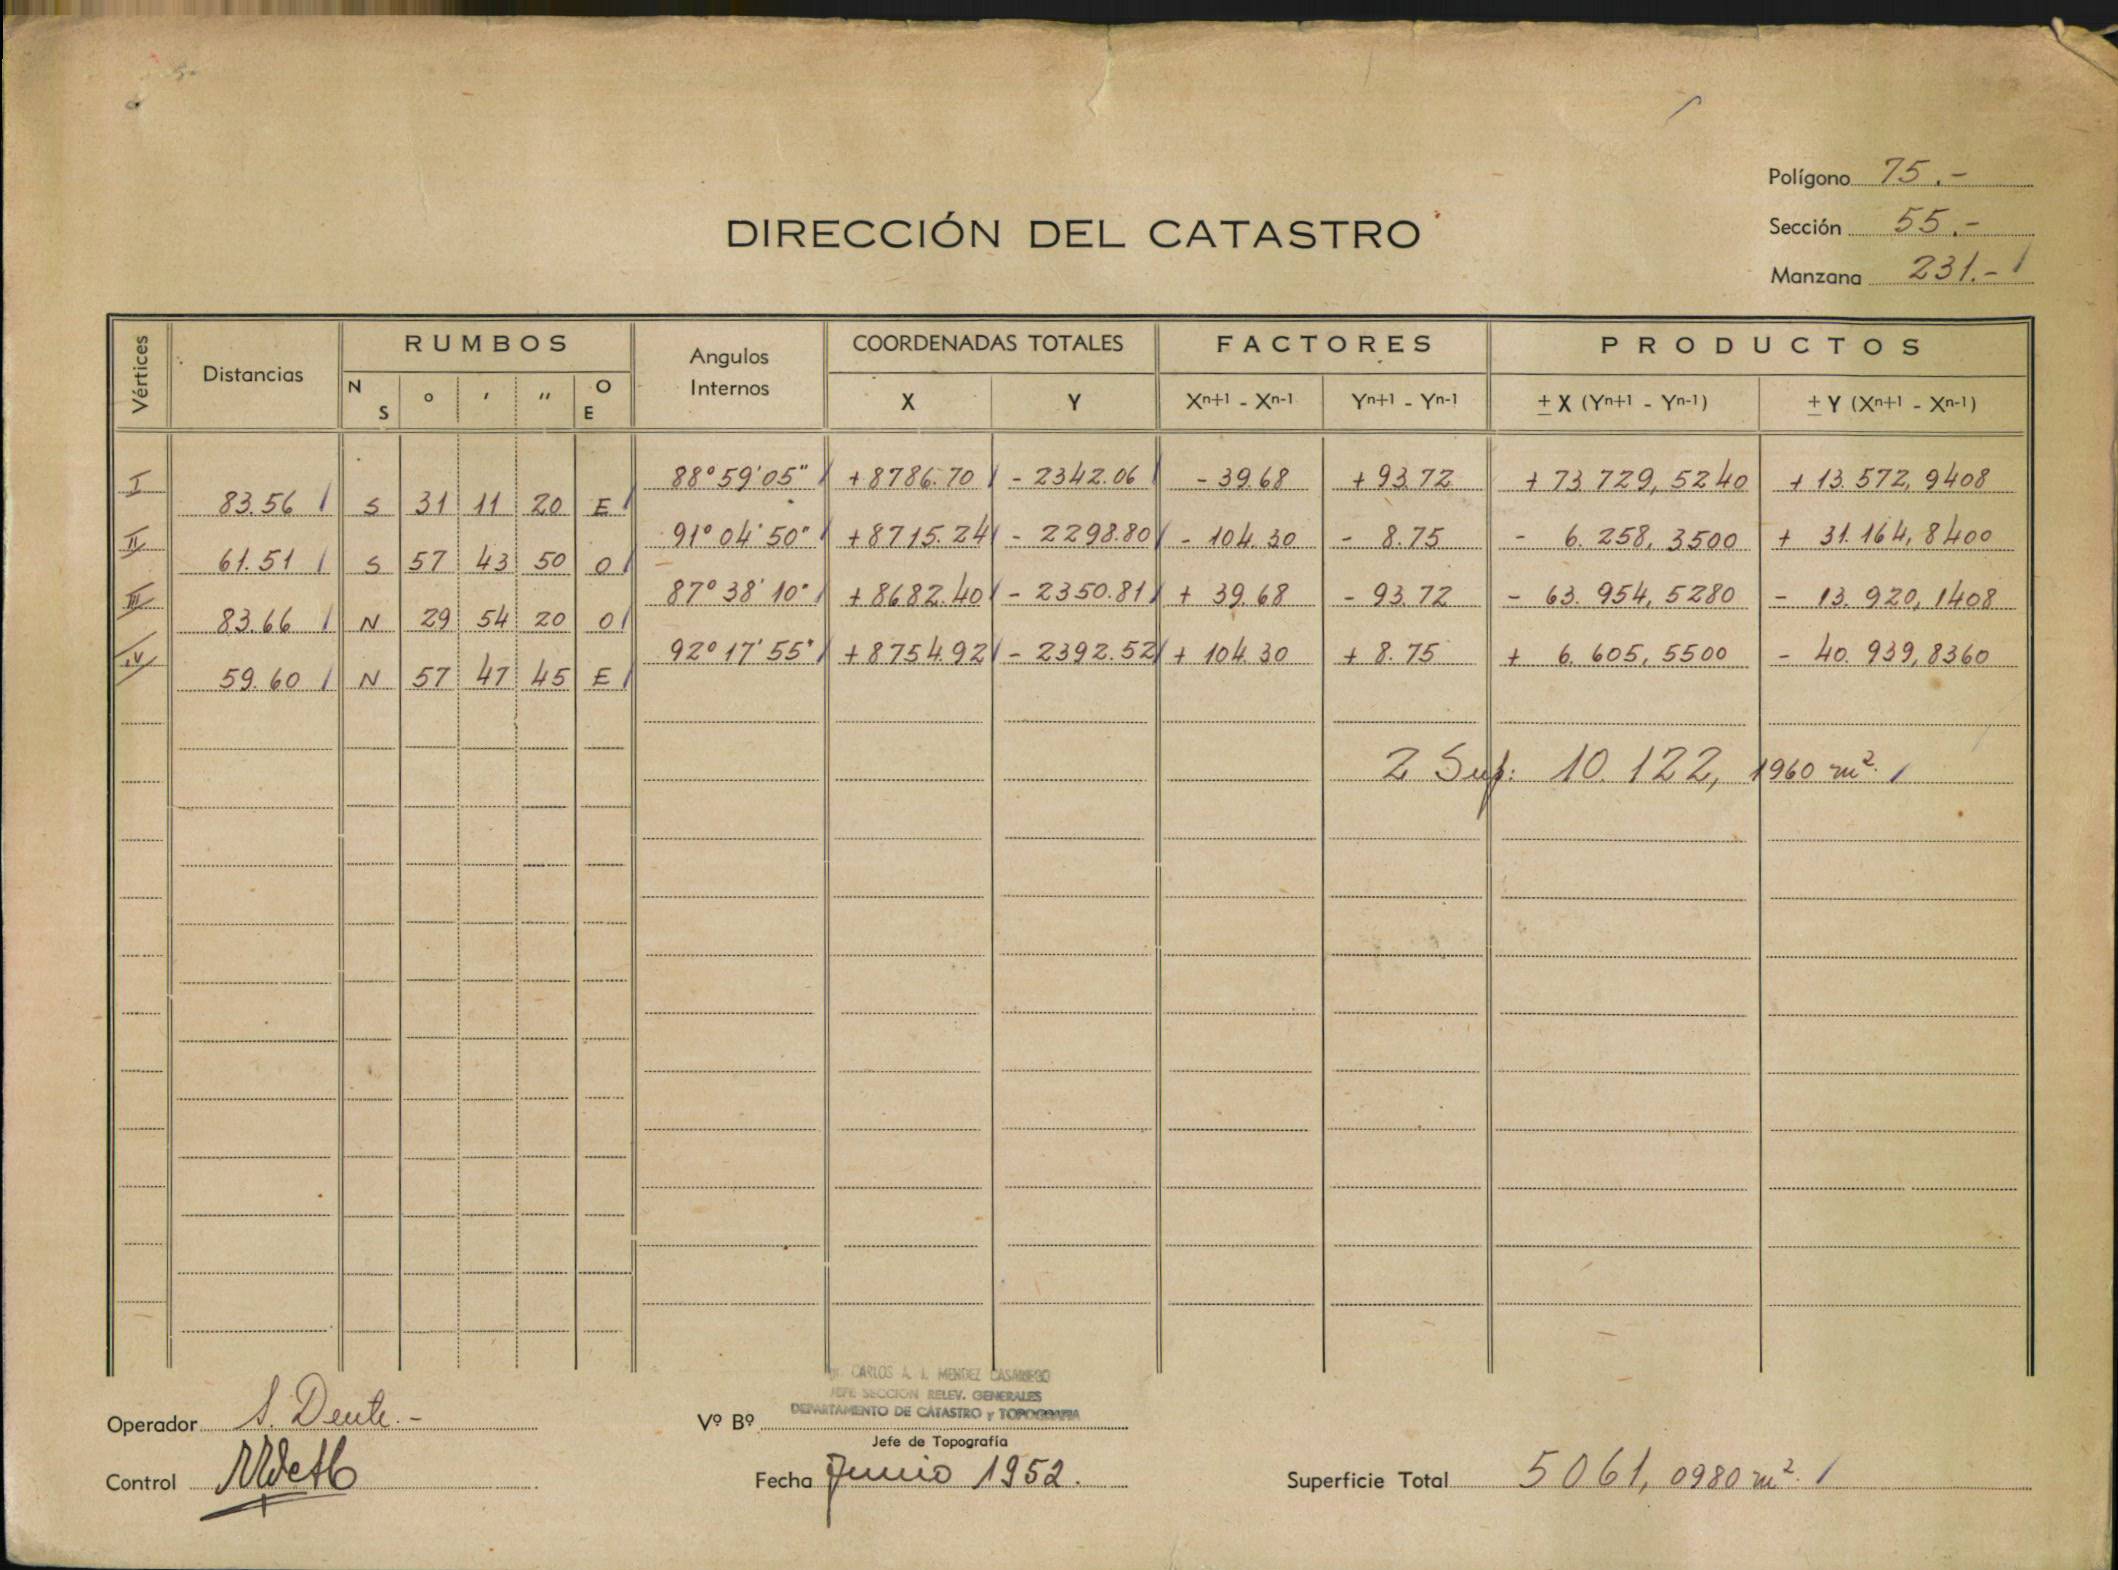 Polígono 75.-
DIRECCIÓN DEL CATASTRO
Sección 55.-
Manzana 231.-
Vértices Distancias RUMBOS Angulos Internos COORDENADAS TOTALES FACTORES PRODUCTOS
N S ° ' " O E X Y Xn+1 - Xn-1 Yn+1 - Yn-1 ± X (Yn+1 - Yn-1) ± Y (Xn+1 - Xn-1)
I 88°59'05" +8786.70 - 2342.06 - 39.68 + 93.72 + 73.729,5240 + 13.572,9408
83.56 S 31 11 20 E
II 91°04'50" +8715.24 - 2298.80 - 104.30 - 8.75 - 6.258,3500 + 31.164,8400
61.51 S 57 43 50 O
III 87°38'10" +8682.40 - 2350.81 + 39.68 - 93.72 - 63.954,5280 - 13.920,1408
83.66 N 29 54 20 O
IV 92°17'55" +8754.92 - 2392.52 + 104.30 + 8.75 + 6.605,5500 - 40.939,8360
59.60 N 57 47 45 E
2 Sup: 10.122,1960 m².
CARLOS A. J. MENDEZ CASARIEGO
JEFE SECCION RELEV. GENERALES
DEPARTAMENTO DE CATASTRO y TOPOGRAFIA
Operador S. Dente.- Vº Bº
Jefe de Topografía
Control Fecha Junio 1952. Superficie Total 5061,0980 m².